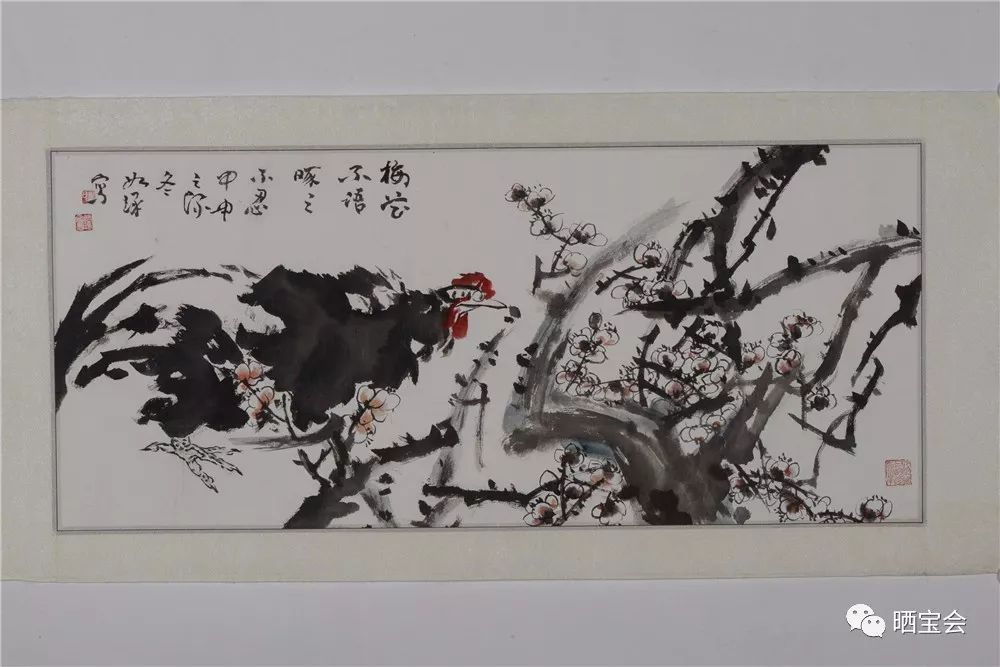 梅花
不语
啄之
不忍
甲申
之深
冬
如缘
写
晒宝会